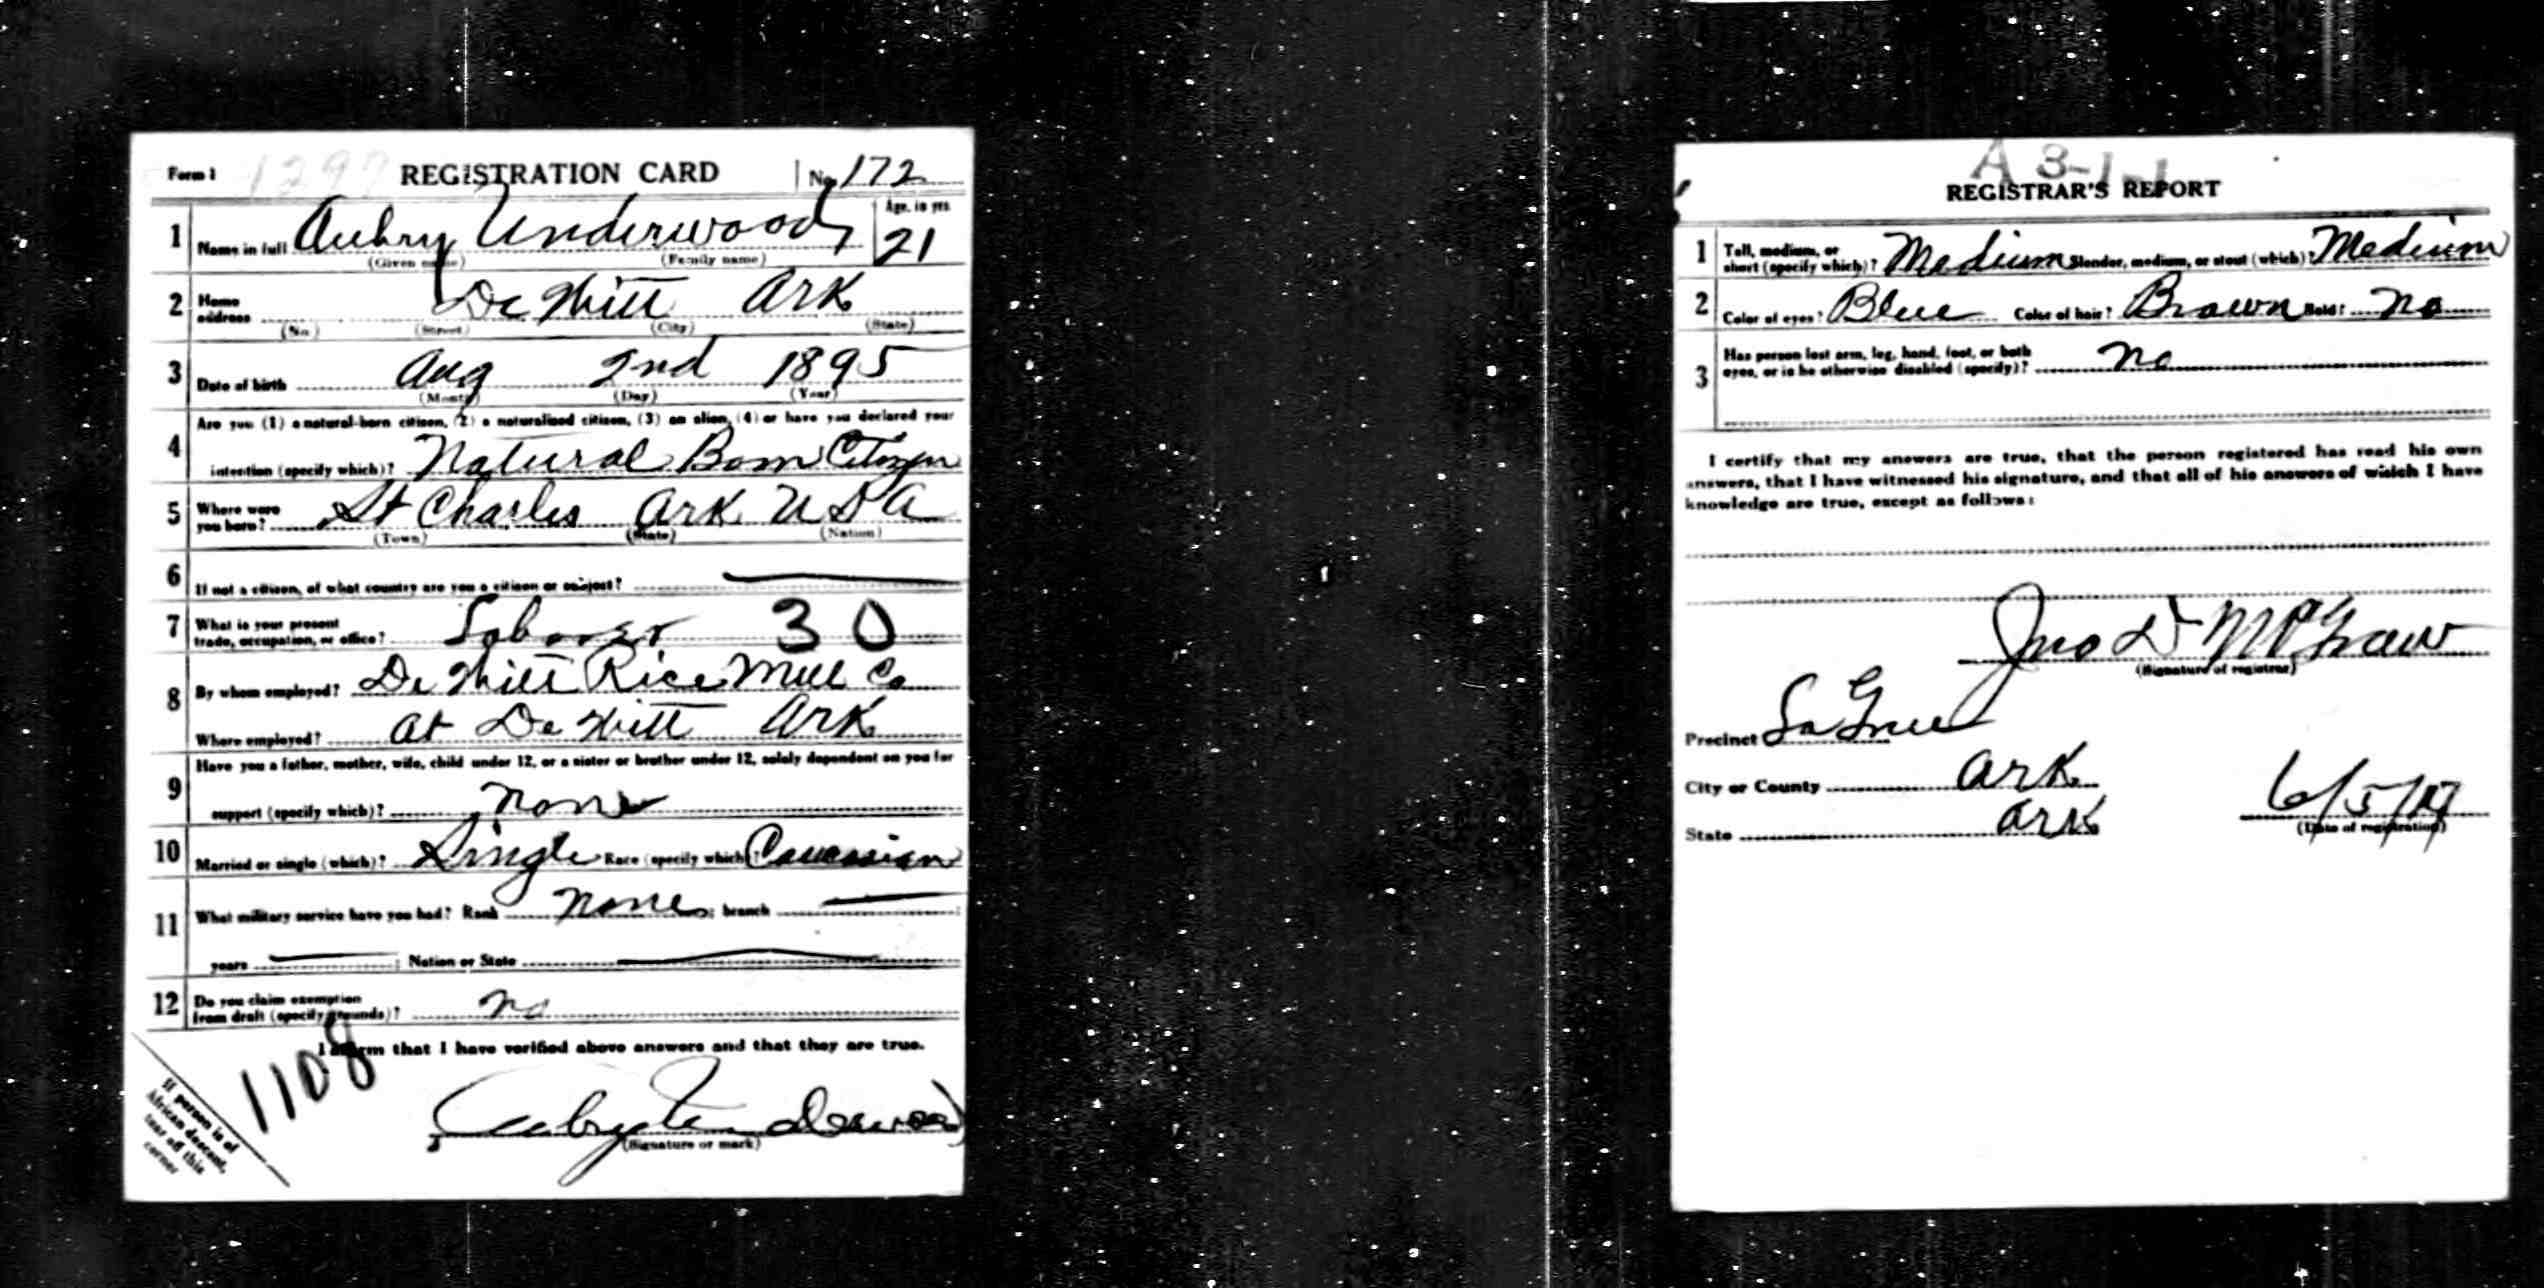 Form 1 1297 REGISTRATION CARD No. 172
1 Name in full Aubry Underwood Age, in yrs 21
(Given name) (Family name)
2 Home address De Witt Ark
(No.) (Street) (City) (State)
3 Date of birth Aug 2nd 1895
(Month) (Day) (Year)
4 Are you (1) a natural-born citizen, (2) a naturalized citizen, (3) an alien, (4) or have you declared your
intention (specify which)? Natural Born Citizen
5 Where were you born? St Charles Ark U S A
(Town) (State) (Nation)
6 If not a citizen, of what country are you a citizen or subject?
7 What is your present trade, occupation, or office? Laborer 30
8 By whom employed? De Witt Rice Mill Co
Where employed? at De Witt Ark
9 Have you a father, mother, wife, child under 12, or a sister or brother under 12, solely dependent on you for
support (specify which)? None
10 Married or single (which)? Single Race (specify which)? Caucasian
11 What military service have you had? Rank None; branch
years ; Nation or State
12 Do you claim exemption from draft (specify grounds)? No
I affirm that I have verified above answers and that they are true.
1108
Aubry Underwood
(Signature or mark)
If person is of
African descent,
tear off this
corner
A 3-1-1
REGISTRAR'S REPORT
1 Tall, medium, or short (specify which)? Medium Slender, medium, or stout (which)? Medium
2 Color of eyes? Blue Color of hair? Brown Bald? No
3 Has person lost arm, leg, hand, foot, or both eyes, or is he otherwise disabled (specify)? No
I certify that my answers are true, that the person registered has read his own
answers, that I have witnessed his signature, and that all of his answers of which I have
knowledge are true, except as follows:
Jno D McGraw
(Signature of registrar)
Precinct La Grue
City or County Ark
State Ark 6/5/17
(Date of registration)